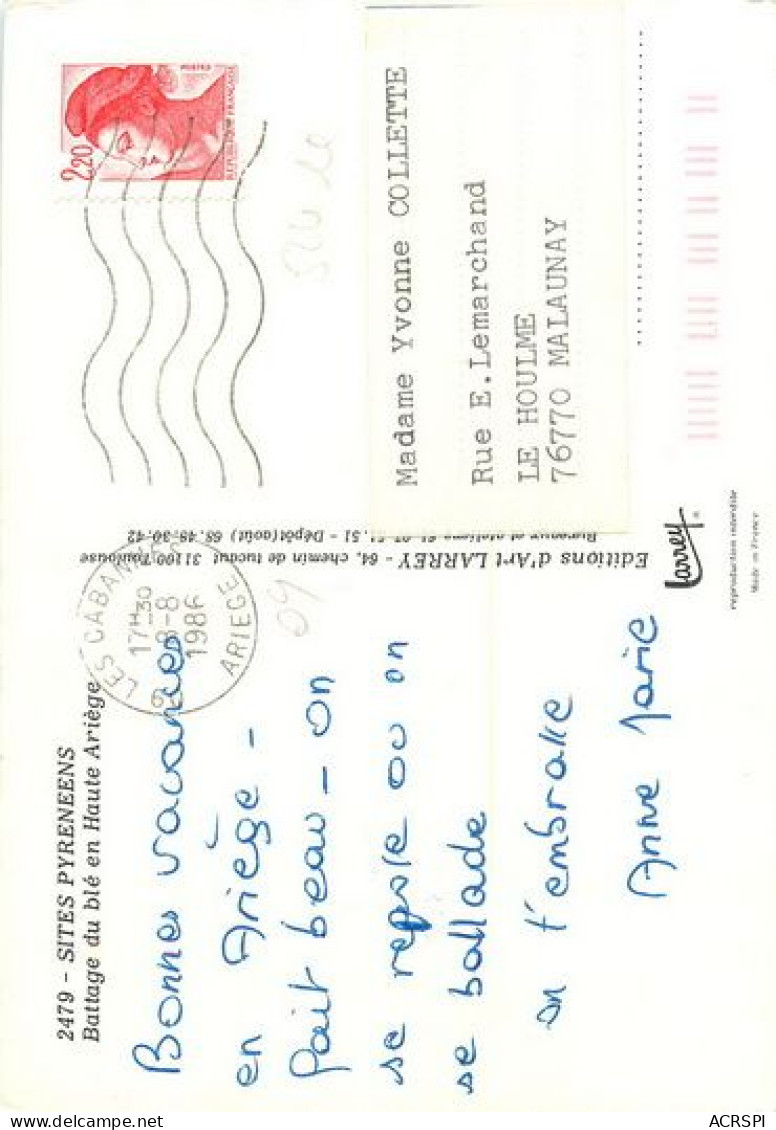 2479 - SITES PYRENEENS
Battage du blé en Haute Ariège
Bonnes vacances
en Ariège -
fait beau - on
se repose ou on
se ballade
on t'embrasse
Anne Marie
LES CABANNES
17H30
8-8
1986
ARIEGE
09
Editions d'Art LARREY - 64, chemin de tucaut 31100 Toulouse
51.51 - Dépôt (août) 68.48-30-42
2,20
POSTES
REPUBLIQUE FRANÇAISE
Madame Yvonne COLLETTE
Rue E.Lemarchand
LE HOULME
76770 MALAUNAY
Larrey
reproduction interdite
Made in France
ACRSPI